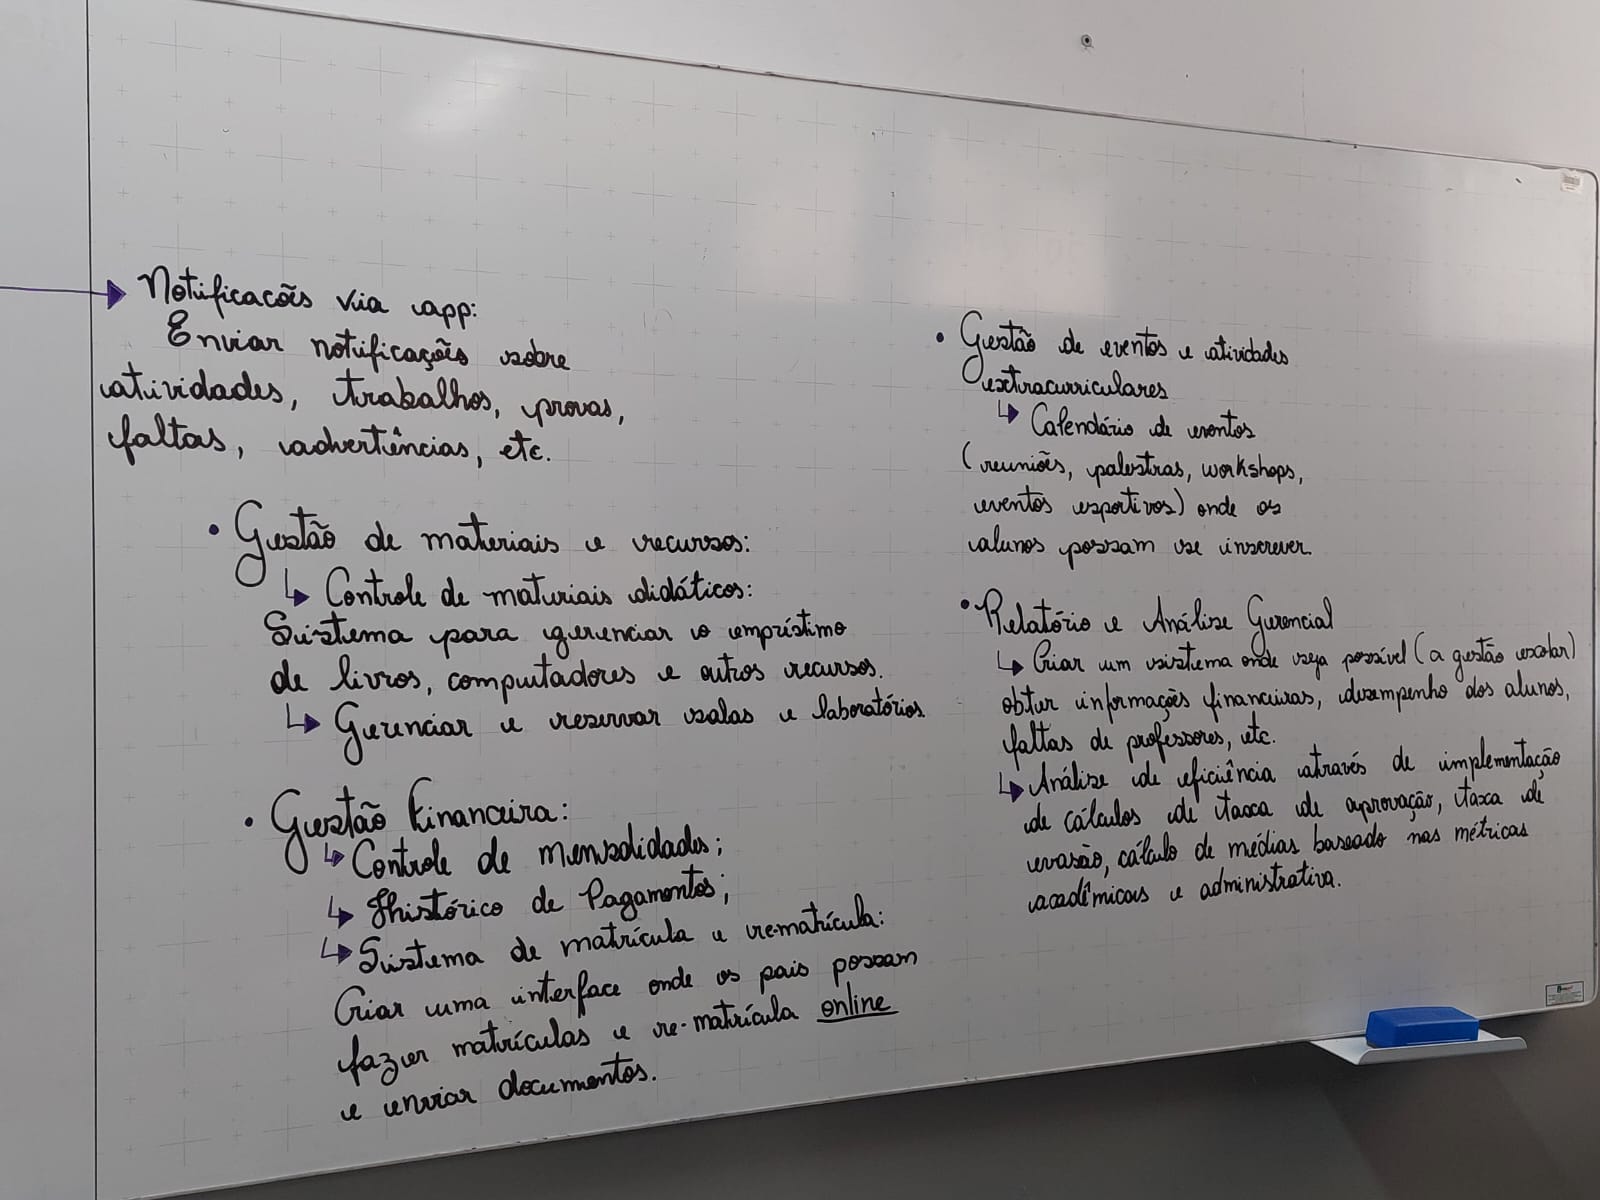 Notificacões via app:
Enviar notificações sobre
atividades, trabalhos, provas,
faltas, advertências, etc.
• Gestão de materiais e recursos:
↳ Controle de materiais didáticos:
Sistema para gerenciar o empréstimo
de livros, computadores e outros recursos.
↳ Gerenciar e reservar salas e laboratórios
• Gestão Financeira:
↳ Controle de Mensalidades;
↳ Histórico de Pagamentos;
↳ Sistema de matrícula e re-matrícula:
Criar uma interface onde os pais possam
fazer matrículas e re-matrícula online
e enviar documentos.
• Gestão de eventos e atividades
extracurriculares
↳ Calendário de eventos
(reuniões, palestras, workshops,
eventos esportivos) onde os
alunos possam se inscrever.
• Relatório e Análise Gerencial
↳ Criar um sistema onde seja possível (a gestão escolar)
obter informações financeiras, desempenho dos alunos,
faltas de professores, etc.
↳ Análise de eficiência através de implementação
de cálculos de taxa de aprovação, taxa de
evasão, cálculo de médias baseado nas métricas
acadêmicas e administrativa.